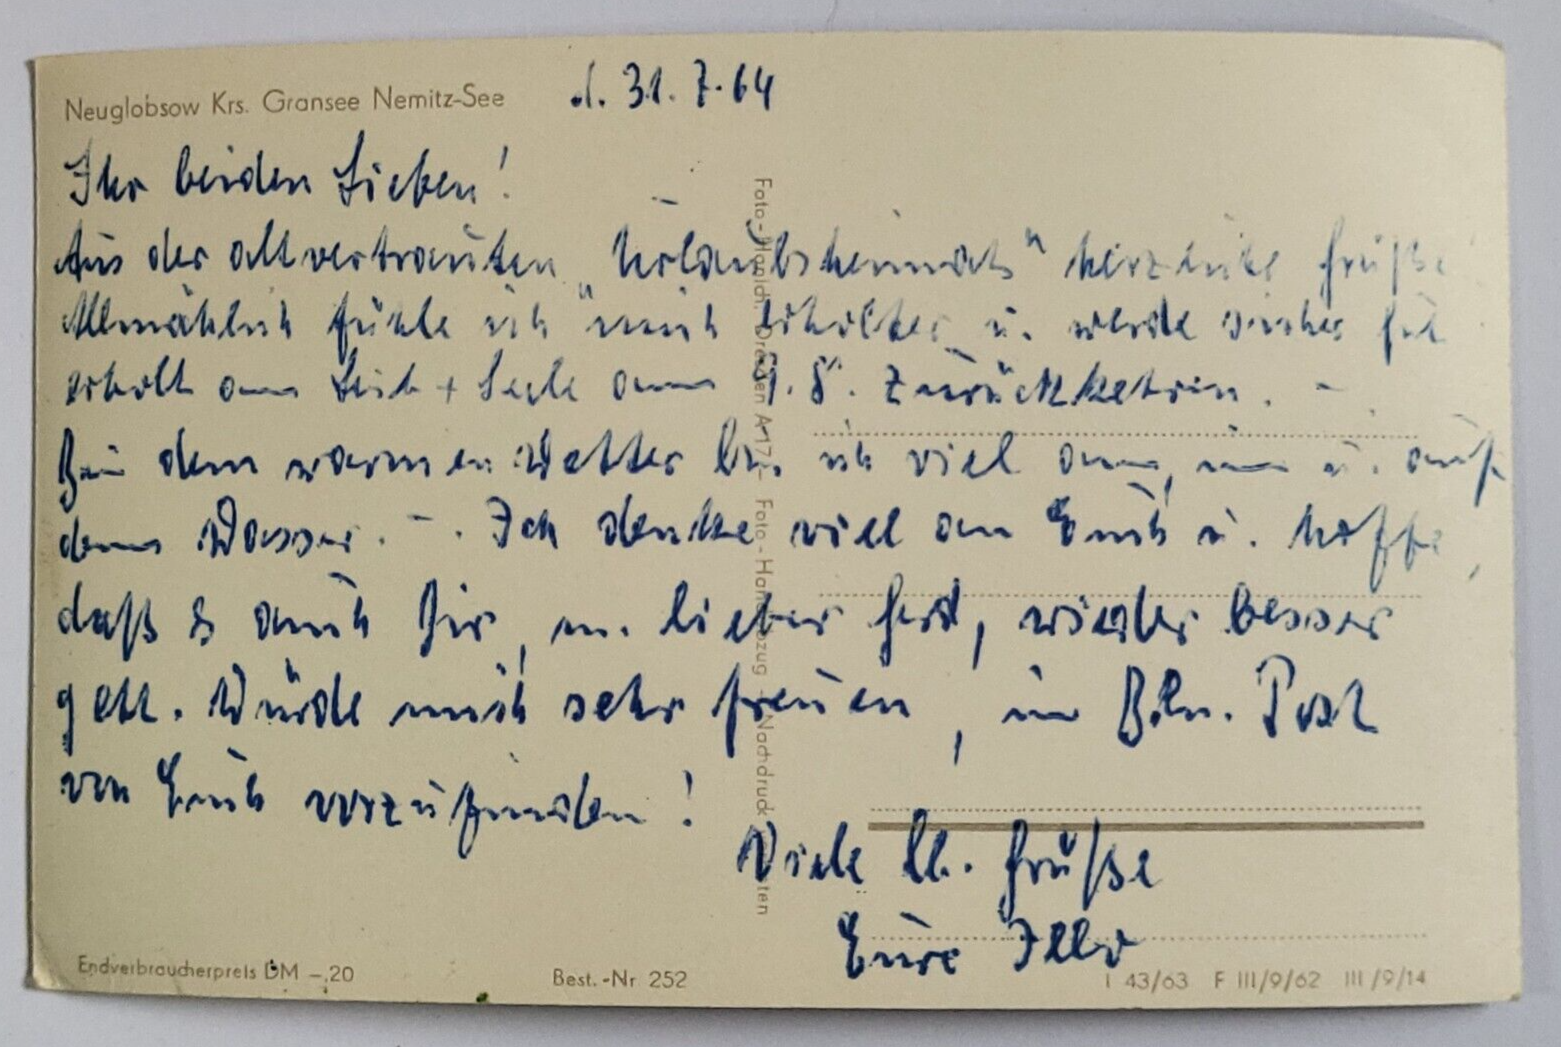 Neuglobsow Krs. Gransee Nemitz-See
d. 31.7.64
Ihr beiden Lieben!
Aus der altvertrauten „Urlaubsheimat“ herzliche Grüße
Allmählich fühle ich mich erholter u. werde sicher gut
erholt an Leib + Seele am 9.8. zurückkehren. –
Bei dem warmen Wetter bin ich viel am, im u. auf
dem Wasser. – . Ich denke viel an Euch u. hoffe,
daß es auch Dir, m. lieber Gerd, wieder besser
geht. Würde mich sehr freuen, in Bln. Post
von Euch vorzufinden!
Viele lb. Grüße
Eure
Foto-Handabzug Nachdruck
Endverbraucherpreis DM –,20
Best.-Nr 252
I 43/63 F III/9/62 III/9/14